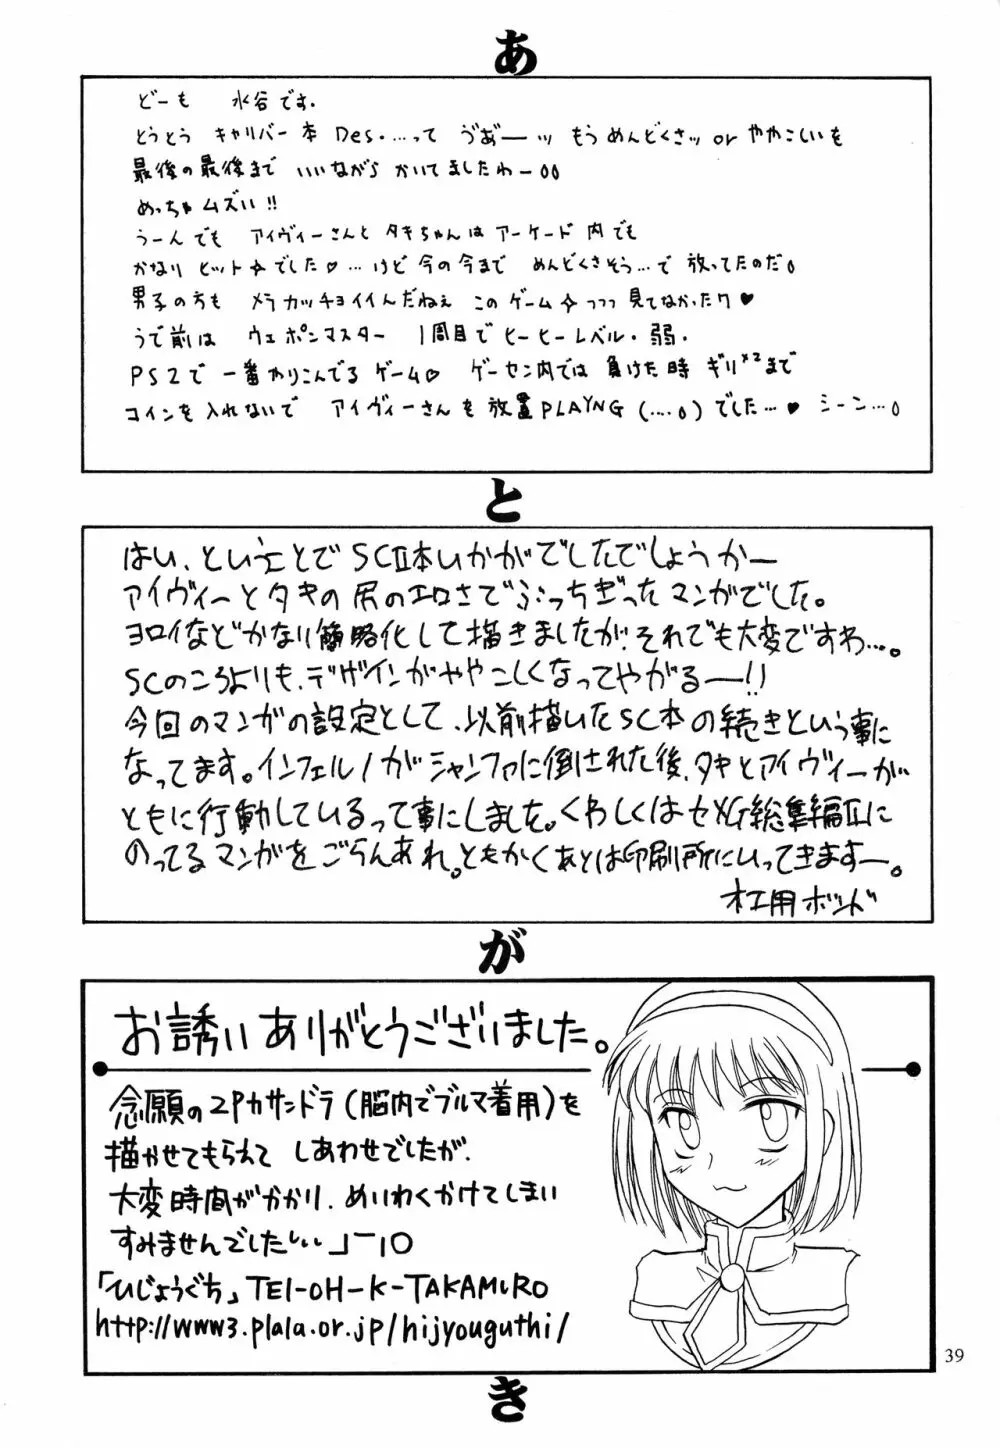 あ
どーも 水谷です.
とうとう キャリバー本 Des.…って ゔあ゙ーッ もう めんどくさッ or ややこしいを
最後の最後まで いいながら かいてましたわー
めっちゃムズい!!
うーんでも アイヴィーさんと タキちゃんは アーケード内でも
かなり ヒット☆でした♥…けど 今の今まで めんどくさそう…で 放ってたのだ。
男子の方も メラカッチョイイんだねぇ このゲーム☆っつっ 見てなかった?♥
うで前は ウェポンマスター 1周目でヒーヒーレベル・弱.
PS2で 一番やりこんでるゲーム♡ ゲーセン内では 負けた時 ギリ×2まで
コインを入れないで アイヴィーさんを 放置PLAYNG (….。)でした…♥ シーン…。
と
はい、ということで SCⅡ本いかがでしたでしょうかー
アイヴィーとタキの尻のエロさでぶっちぎったマンガでした。
ヨロイなどかなり簡略化して描きましたが、それでも大変ですわ…。
SCのころよりも、デザインがややこしくなってやがるー!!
今回のマンガの設定として、以前描いたSC本の続きという事に
なってます。インフェルノがシャンファに倒された後、タキとアイヴィーが
ともに行動しているって事にしました。くわしくはセメG総集編Ⅱに
のってるマンガをごらんあれ。ともかくあとは印刷所にいってきますー。
木工用ボンド
が
お誘いありがとうございました。
念願の2Pカサンドラ(脳内でブルマ着用)を
描かせてもらえて しあわせでしたが、
大変時間がかかり、めいわくかけてしまい
すみませんでした
「ひじょうぐち」TEI-OH-K-TAKAMURO
http://www3.plala.or.jp/hijyouguthi/
39
き